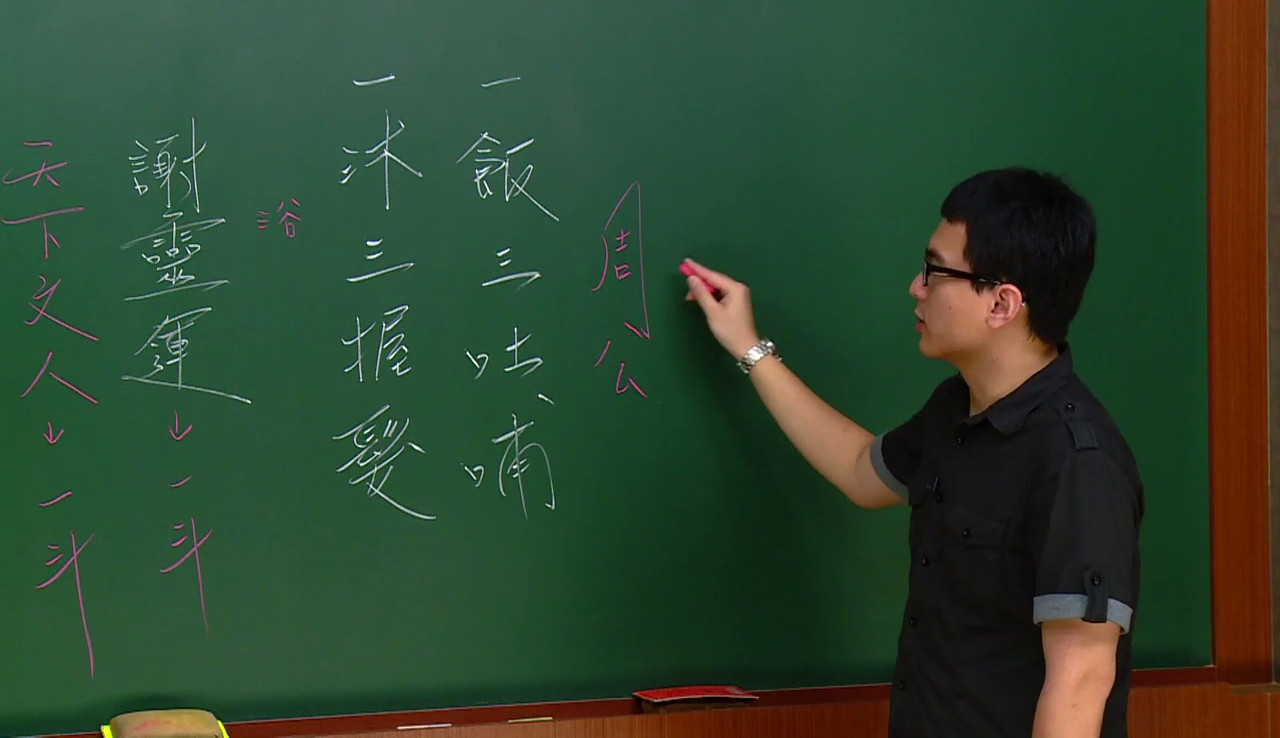 周公
一飯三吐哺
一沐三握髮
浴
謝靈運↓一斗
天下文人↓一斗